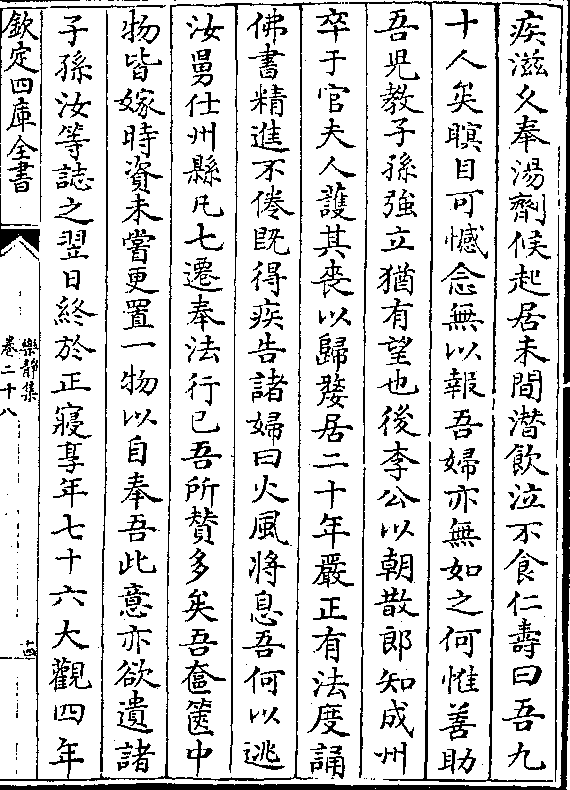 疾滋久奉湯劑候起居未間潛飲泣不食仁壽曰吾九
十人矣瞑目可憾念無以報吾婦亦無如之何惟善助
吾兒教子孫強立猶有望也後李公以朝散郎知成州
卒于官夫人護其喪以歸嫠居二十年嚴正有法度誦
佛書精進不倦既得疾告諸婦曰火風將息吾何以逃
汝舅仕州縣凡七遷奉法行已吾所贊多矣吾奩篋中
物皆嫁時資未嘗更置一物以自奉吾此意亦欲遺諸
子孫汝等誌之翌日終於正寢享年七十六大觀四年
欽定四庫全書
樂靜集
卷二十八
十四